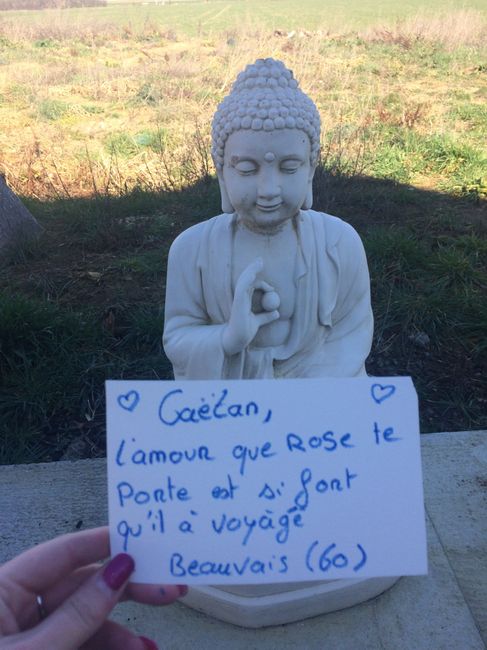 ♡ Gaëtan, ♡
l'amour que Rose te
Porte est si fort
qu'il à voyàgé
Beauvais (60)